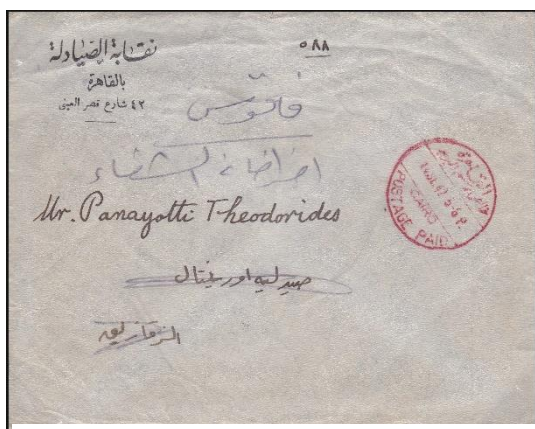 نقابة الصيادلة
بالقاهرة
٤٢ شارع قصر العينى
٥٨٨
فاقوس
اجزاخانة الشفاء
Mr. Panayotti Theodorides
صيدلية اورينتال
الزقازيق
CAIRO
POSTAGE PAID